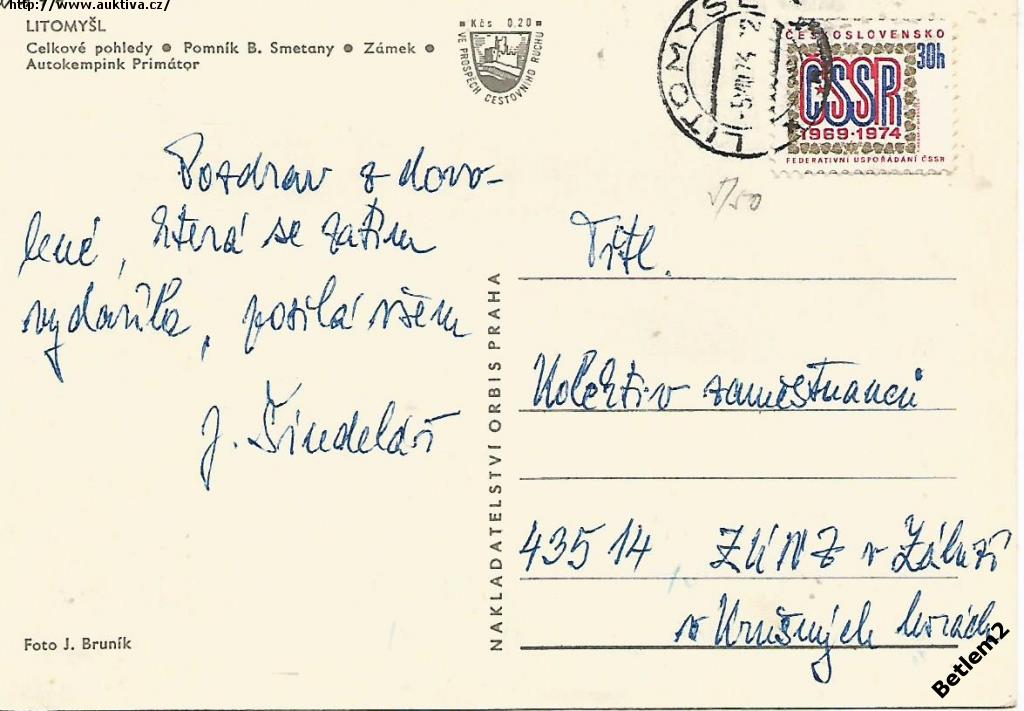 http://www.auktiva.cz/
LITOMYŠL
Celkové pohledy ● Pomník B. Smetany ● Zámek ●
Autokempink Primátor
Kčs 0,20
VE PROSPĚCH CESTOVNÍHO RUCHU
LITOMYŠL
-5.VIII.74
ČESKOSLOVENSKO
30h
ČSSR
1969-1974
FEDERATIVNÍ USPOŘÁDÁNÍ ČSSR
Pozdrav z dovo-
lené, která se zatím
vydařila, posílá všem
J. Šindelář
NAKLADATELSTVÍ ORBIS PRAHA
Kolektiv zaměstnanců
43514 ZÚNZ v Záluží
v Krušných horách
Foto J. Bruník
Betlem2